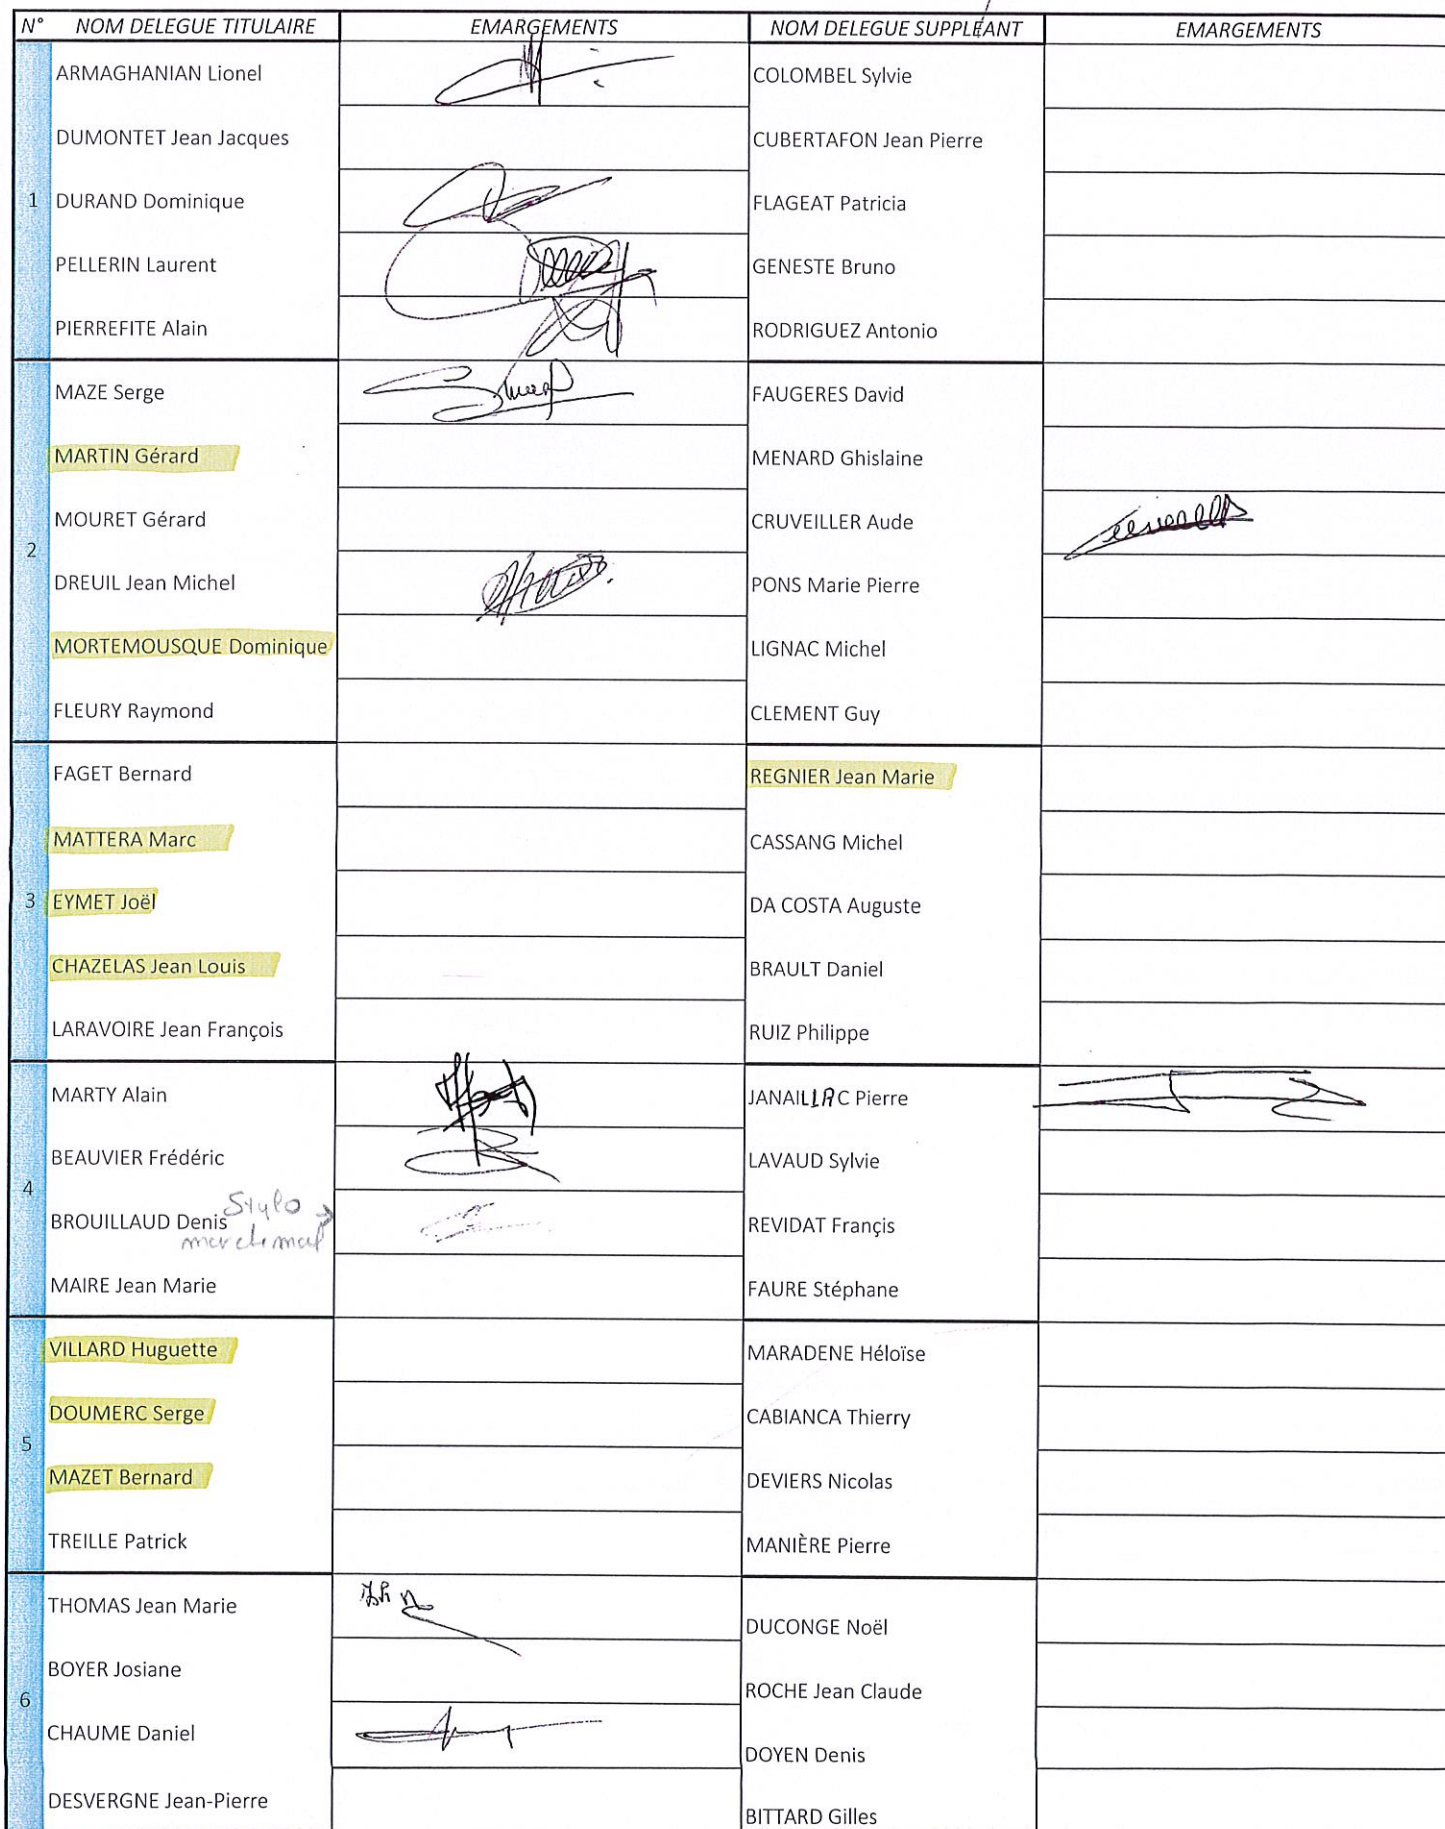 N° NOM DELEGUE TITULAIRE EMARGEMENTS NOM DELEGUE SUPPLÉANT EMARGEMENTS
ARMAGHANIAN Lionel COLOMBEL Sylvie
DUMONTET Jean Jacques CUBERTAFON Jean Pierre
1 DURAND Dominique FLAGEAT Patricia
PELLERIN Laurent GENESTE Bruno
PIERREFITE Alain RODRIGUEZ Antonio
MAZE Serge FAUGERES David
MARTIN Gérard MENARD Ghislaine
MOURET Gérard CRUVEILLER Aude
2
DREUIL Jean Michel PONS Marie Pierre
MORTEMOUSQUE Dominique LIGNAC Michel
FLEURY Raymond CLEMENT Guy
FAGET Bernard REGNIER Jean Marie
MATTERA Marc CASSANG Michel
3 EYMET Joël DA COSTA Auguste
CHAZELAS Jean Louis BRAULT Daniel
LARAVOIRE Jean François RUIZ Philippe
MARTY Alain JANAILLAC Pierre
BEAUVIER Frédéric LAVAUD Sylvie
4
BROUILLAUD Denis Stylo REVIDAT Françis
marche mal
MAIRE Jean Marie FAURE Stéphane
VILLARD Huguette MARADENE Héloïse
DOUMERC Serge CABIANCA Thierry
5
MAZET Bernard DEVIERS Nicolas
TREILLE Patrick MANIÈRE Pierre
THOMAS Jean Marie DUCONGE Noël
BOYER Josiane ROCHE Jean Claude
6
CHAUME Daniel DOYEN Denis
DESVERGNE Jean-Pierre BITTARD Gilles